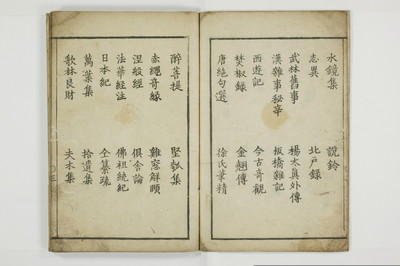 水鏡集 說鈴
志異 北戶錄
武林舊事 楊太眞外傳
漢雜事秘辛 板橋雜記
西遊記 今古奇觀
焚椒録 金翹傳
唐絶句選 徐氏筆精
醉菩提 堅瓠集
赤繩奇縁 雞窓解頤
涅槃經 俱舍論
法華經註 佛祖統紀
日本紀 仝纂疏
萬葉集 拾遺集
歌林良財 夫木集